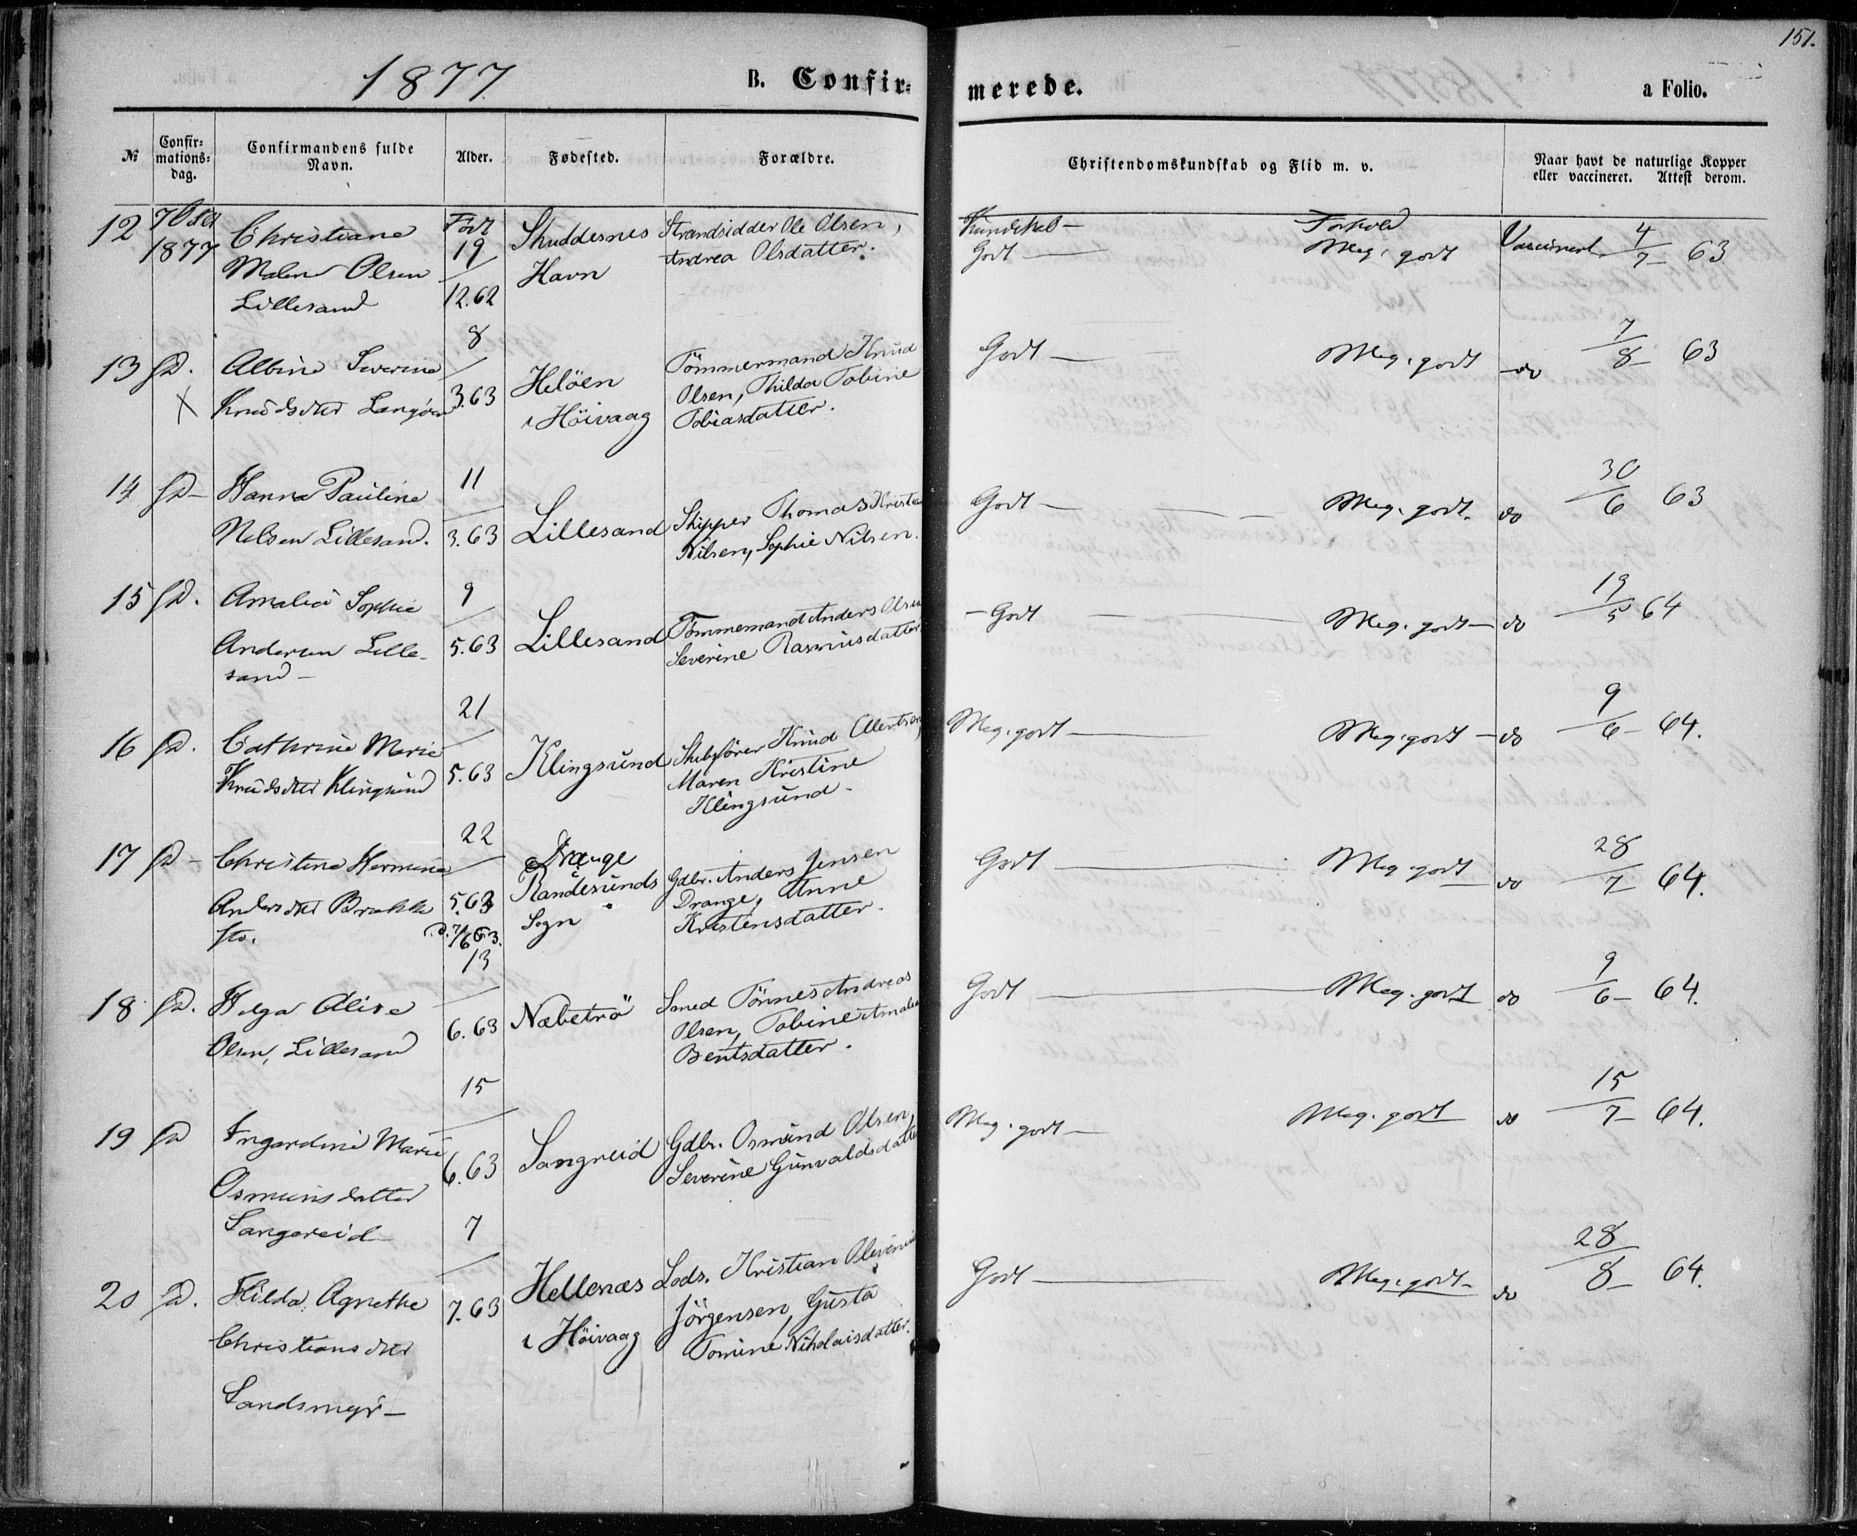 151.
1877 B. Confirmerede. a Folio.
№ Confirmationsdag. Confirmandens fulde Navn. Alder. Fødested. Forældre. Christendomskundskab og Flid m. v. Naar havt de naturlige Kopper eller vaccineret. Attest derom.
12 7 Oct 1877
Christiane
Malene Olsen
Lillesand
Født 19/12.62
Skuddesnes
Havn
Strandsidder Ole Olsen,
Andrea Olsdatter.
Kundskab –
Godt —
Forhold
Meg. godt
Vaccineret 4/7 – 63
13 sd.
Albine Severine
Knudsdtr Langøen
8/3.63
Helöen
i Höivaag
Tömmermand Knud
Olsen, Thilda Tobine
Tobiasdatter.
Godt —
Meg. godt
do
7/8 – 63
14 sd –
Hanna Pauline
Nelsen Lillesand.
11/3.63
Lillesand
Skipper Thomas Kristen
Nilsen, Sophie Nilsen.
Godt —
Meg. godt.
do
30/6 63
15 sd.
Amalia Sophie
Andersen Lille-
sand –
9/5.63
Lillesand
Tömmemand Anders Olsen
Severine Rasmusdatter
– Godt
Meg. godt –
do
19/5 64
16 sd.
Cathrine Marie
Knudsdtr Klingsund
21/5.63
Klingsund
Skibsförer Knud Ellertsen,
Maren Kristine
Klingsund –
Meg. godt —
Meg. godt –
do
9/6 – 64.
17 sd –
Christine Hermine
Andersdtr Brække
sto.
22/5.63
d. 7/6 63.
Drange
Randesunds
Sogn
Gdbr. Anders Jensen
Drange, Anne
Kristensdatter.
Godt —
Meg. godt
do
28/7 64.
18 sd.
Helga Elise
Olsen, Lillesand
13/6.63
Næbetrö
Smed Tönnes Andreas
Olsen, Tobine Amalia
Bentsdatter.
Godt —
Meg. godt
do
9/6 – 64.
19 sd
Ingardine Marie
Osmunsdatter
Sangereid
15/6.63
Sangreid
Gdbr. Osmund Olsen,
Severine Gunvaldsdatter
Meg. godt —
Meg. godt
do
15/7 – 64.
20 sd.
Hilda Agnethe
Christiansdtr
Sandsmyr –
7/7.63
Hellenæs
i Höivaag
Lods. Kristian
Jörgensen, Gusta
Tomine Nikolaisdatter.
Godt —
Meg. godt –
do
28/8 – 64.